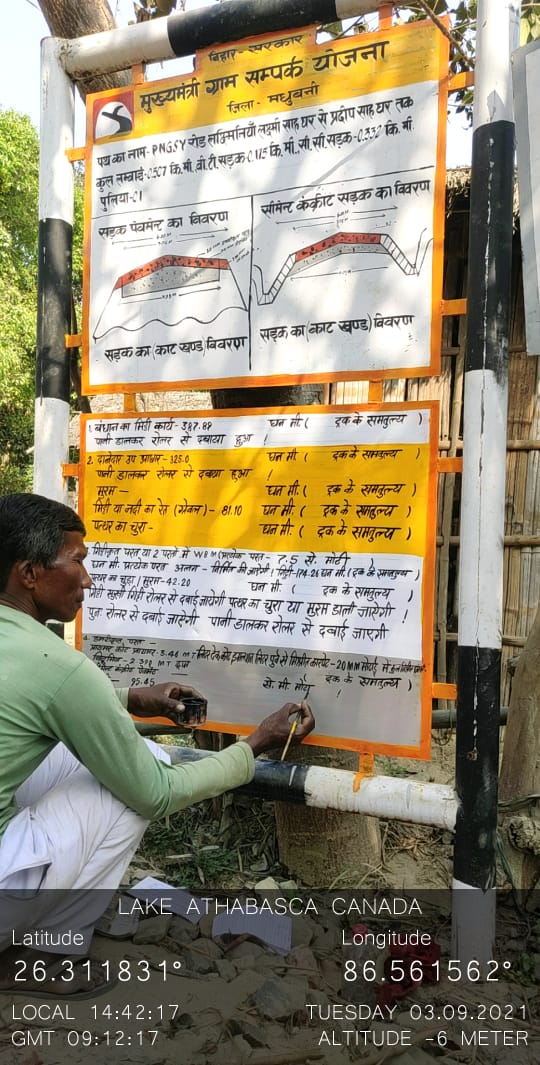 बिहार - सरकार
मुख्यमंत्री ग्राम सम्पर्क योजना
जिला - मधुबनी
पथ का नाम - P.N.G.S.Y रोड लक्ष्मी साह घर से प्रदीप साह घर तक
कुल लम्बाई - 0.507 कि.मी. बी.टी. सड़क 0.175 कि.मी. सी.सी. सड़क - 0.332 कि.मी.
पुलिया - 01
सड़क पेवमेन्ट का विवरण
सीमेन्ट कंक्रीट सड़क का विवरण
सड़क का (काट खण्ड) विवरण
सड़क का (काट खण्ड) विवरण
1. बंधान का मिट्टी कार्य - 387.88 घन मी. ( ट्रक के समतुल्य )
पानी डालकर रोलर से दबाया हुआ !
2. दानेदार उप आधार - 325.0 घन मी. ( ट्रक के समतुल्य )
पानी डालकर रोलर से दबाया हुआ !
मुरम - घन मी. ( ट्रक के समतुल्य )
मिट्टी या नदी का रेत (ग्रेवल) - 81.10 घन मी. ( ट्रक के समतुल्य )
पत्थर का चुरा - घन मी. ( ट्रक के समतुल्य )
परत या 2 परतो में W B M (प्रत्येक परत - 7.5 से. मोटी
घन मी. प्रत्येक परत अलग - निर्मित की जाएगी ! गिट्टी - 114.26 घन मी. ( ट्रक के समतुल्य )
पत्थर का चुड़ा / मुरम - 42.20 घन मी. ( ट्रक के समतुल्य )
गिट्टी सूखी गिट्टी रोलर से दबाई जायेगी पत्थर का चुरा या मुरम डाली जायेगी !
पुनः रोलर से दबाई जाऐगी पानी डालकर रोलर से दबाई जाएगी
4.
20 MM मोटाई में
95.45 से. मी. मोटाई ट्रक के समतुल्य ) !
LAKE ATHABASCA CANADA
Latitude Longitude
26.311831° 86.561562°
LOCAL 14:42:17 TUESDAY 03.09.2021
GMT 09:12:17 ALTITUDE -6 METER